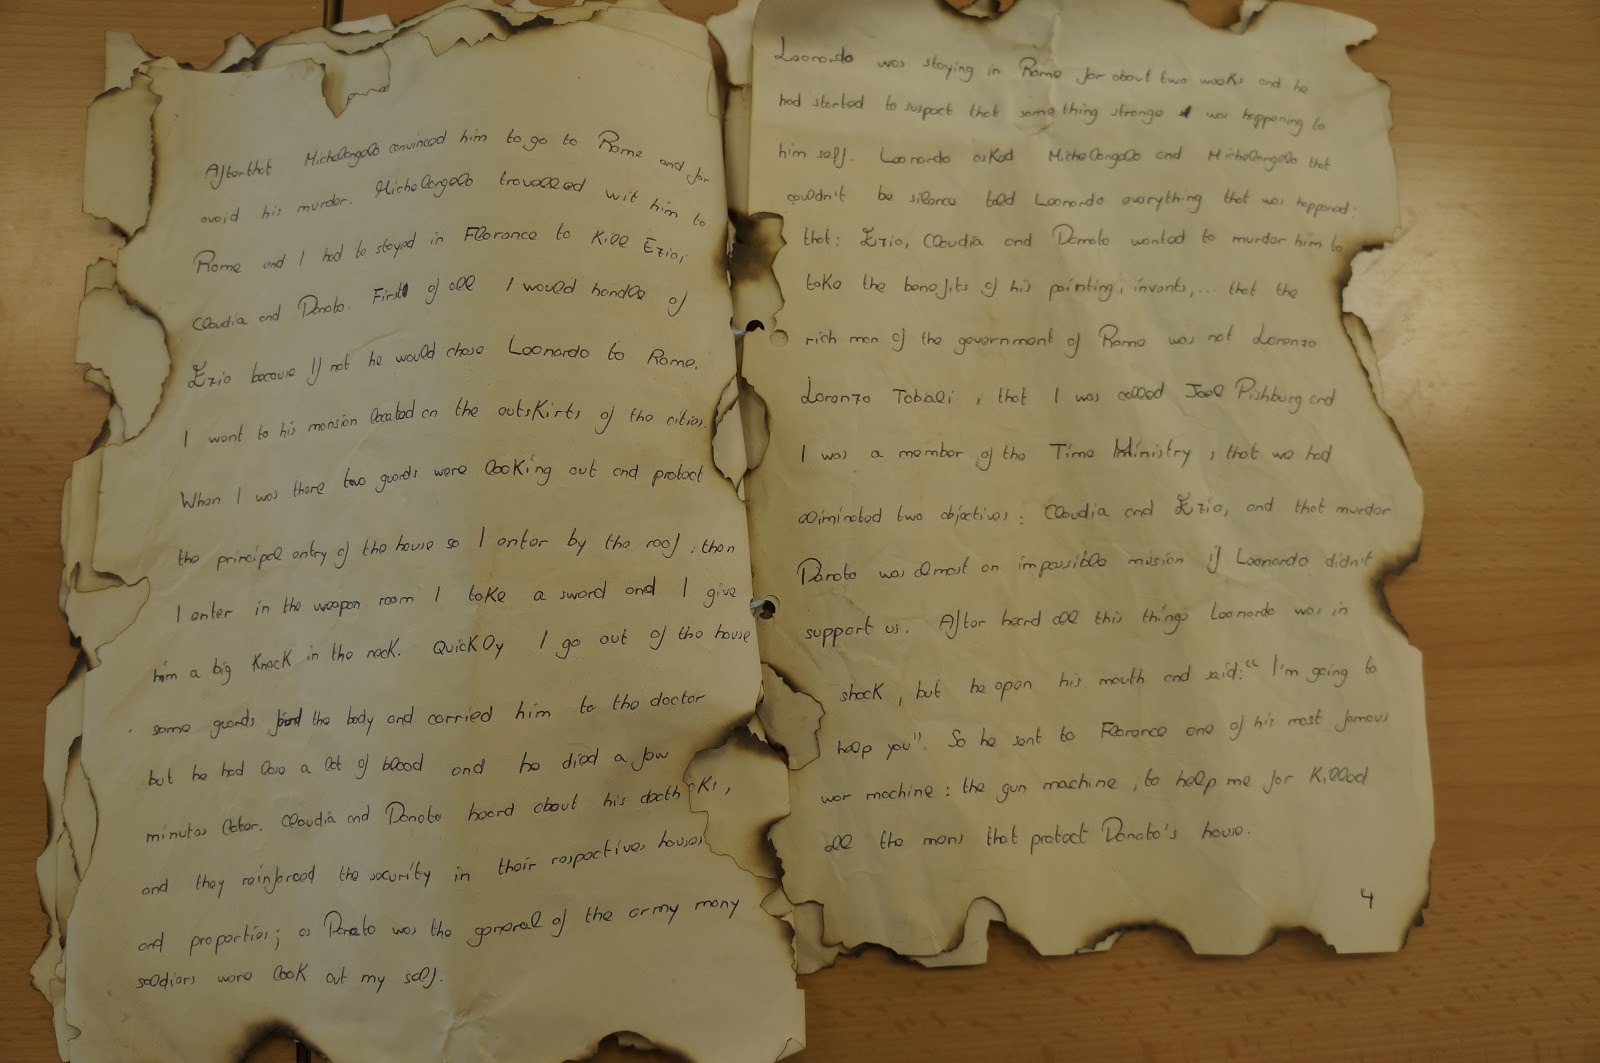 After that Michelangelo convinced him to go to Rome and for
avoid his murder. Michelangelo travelled wit him to
Rome and I had to stayed in Florence to kill Ezio,
Claudia and Donato. First of all I would handle of
Ezio because if not he would chase Leonardo to Rome.
I went to his mansion located on the outskirts of the cities.
When I was there two guards were looking out and protect
the principal entry of the house so I enter by the roof; then
I enter in the weapon room I take a sword and I give
him a big knock in the neck. Quickly I go out of the house
some guards find the body and carried him to the doctor
but he had lose a lot of blood and he died a few
minutes later. Claudia and Donato heard about his death
and they reinforced the security in their respectives houses
and properties; as Donato was the general of the army many
soldiers were look out my self.
Leonardo was staying in Rome for about two weeks and he
had started to suspect that something strange was happening to
him self. Leonardo asked Michelangelo and Michelangelo that
couldn't be silence told Leonardo everything that was happened:
that: Ezio, Claudia and Donato wanted to murder him to
take the benefits of his painting, invents,... that the
rich man of the government of Rome was not Lorenzo
Lorenzo Tobiali, that I was called Joel Pishburg and
I was a member of the Time Ministry, that we had
eliminated two objectives: Claudia and Ezio, and that murder
Donato was almost an impossible mission if Leonardo didn't
support us. After heard all this things Leonardo was in
shock, but he open his mouth and said: "I'm going to
help you". So he sent to Florence one of his most famous
war machine: the gun machine, to help me for killed
all the mens that protect Donato's house.
4